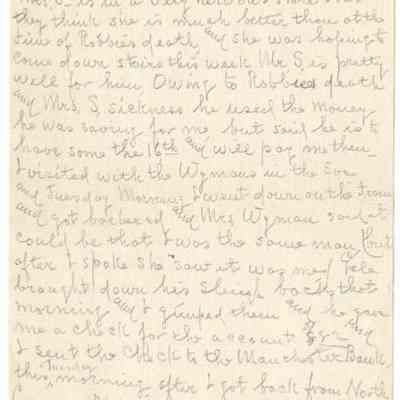 Mrs. S. is in a very nervous state but
they think she is much better than at the
time of Robbie's death and she was hoping to
come down stairs this week Mr S. is pretty
well for him Owing to Robbies death
and Mrs. S. sickness he used the money
he was saving for me but said he is to
have some the 16th and will pay me then
I visited with the Wymans in the Eve
and Tuesday Morning I went down on the Tram
and got barbered and Mrs Wyman said it
could be that I was the same man but
after I spoke she saw it was me Pete
brought down his back that
morning and I them and he gave
me a check for the account and
I sent the check to the Manchester Bank
this Tuesday morning after I got back from North